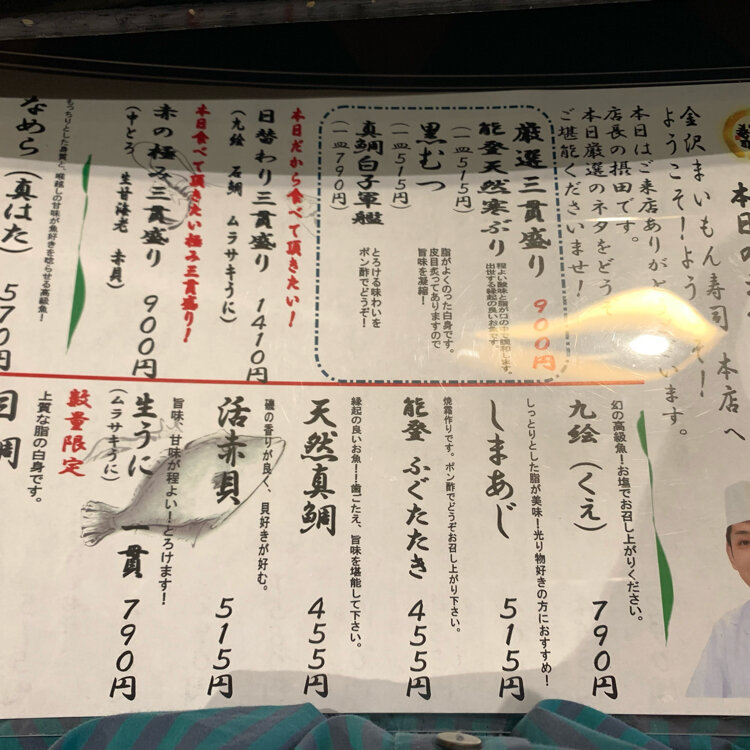 本日の
金沢まいもん寿司 本店へ
ようこそ!ようこそ!
本日はご来店ありがとうございます。
店長の摂田です。
本日厳選のネタをどうぞ
ご堪能くださいませ!
厳選三貫盛り 900円
能登天然寒ぶり
(一皿515円)
程よい酸味と脂が口の中で調和します。
出世する縁起の良いお魚です。
黒むつ
(一皿515円)
脂がよくのった白身です。
皮目炙ってありますので
旨味を凝縮!
真鯛白子軍艦
(一皿790円)
とろける味わいを
ポン酢でどうぞ!
本日だから食べて頂きたい!
日替わり三貫盛り 1410円
(九絵 石鯛 ムラサキうに)
本日食べて頂きたい極み三貫盛り!
赤の極み三貫盛り 900円
(中とろ 生甘海老 赤貝)
もっちりとした身質と、喉越しの甘味が魚好きを唸らせる高級魚!
なめら(真はた) 570円
幻の高級魚!お塩でお召し上がりください。
九絵(くえ) 790円
しっとりとした脂が美味!光り物好きの方におすすめ!
しまあじ 515円
焼霜作りです。ポン酢でどうぞお召し上がり下さい。
能登 ふぐたたき 455円
縁起の良いお魚!!歯ごたえ、旨味を堪能して下さい。
天然真鯛 455円
磯の香りが良く、貝好きが好む。
活赤貝 515円
旨味、甘味が程よい!とろけます!
生うに 一貫 790円
(ムラサキうに)
数量限定
上質な脂の白身です。
目鯛